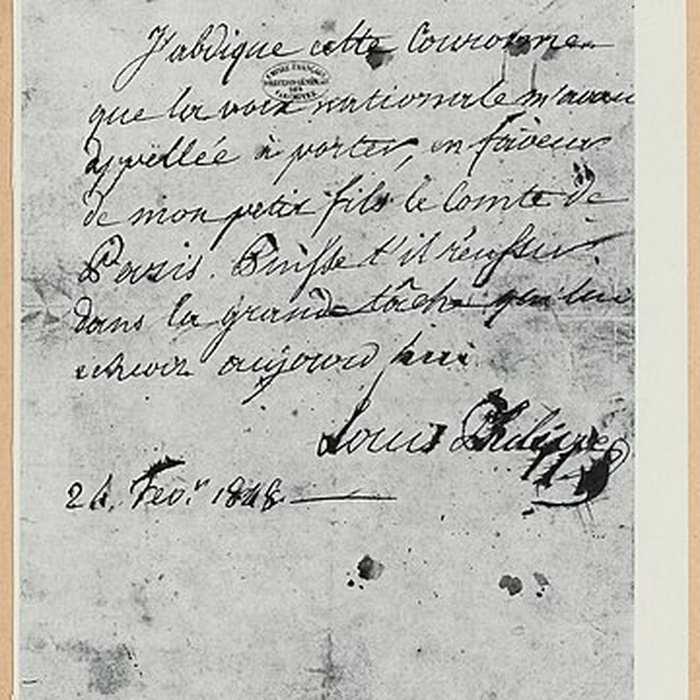 J'abdique cette Couronne
que la voix nationale m'avait
appellée à porter, en faveur
de mon petit fils le Comte de
Paris. Puisse t'il réussir
dans la grande tâche qui lui
echoit aujourd'hui
Louis Philippe
24. Fev.r 1848.